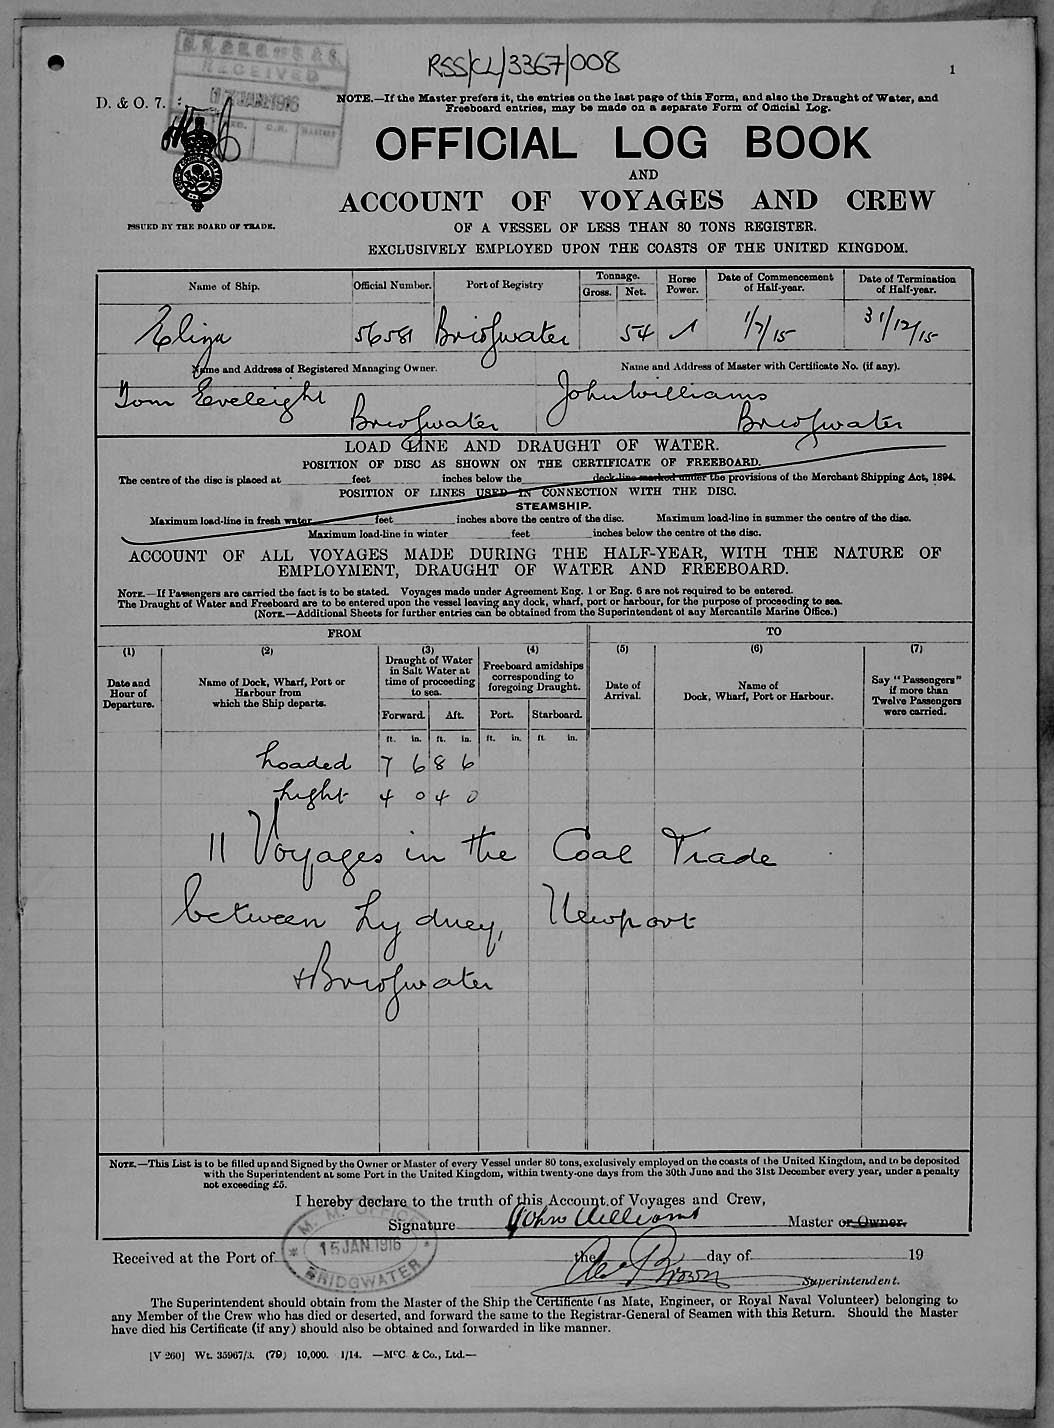 RSS/CL/3367/008
1
RECEIVED
17 JAN 1916
D. & O. 7.
NOTE.—If the Master prefers it, the entries on the last page of this Form, and also the Draught of Water, and
Freeboard entries, may be made on a separate Form of Official Log.
OFFICIAL LOG BOOK
AND
ACCOUNT OF VOYAGES AND CREW
ISSUED BY THE BOARD OF TRADE.
OF A VESSEL OF LESS THAN 80 TONS REGISTER.
EXCLUSIVELY EMPLOYED UPON THE COASTS OF THE UNITED KINGDOM.
Name of Ship. Official Number. Port of Registry Tonnage. Gross. Net. Horse Power. Date of Commencement of Half-year. Date of Termination of Half-year.
Eliza 56581 Bridgwater 54 1/7/15 31/12/15
Name and Address of Registered Managing Owner. Name and Address of Master with Certificate No. (if any).
Tom Eveleigh John Williams
Bridgwater Bridgwater
LOAD LINE AND DRAUGHT OF WATER.
POSITION OF DISC AS SHOWN ON THE CERTIFICATE OF FREEBOARD.
The centre of the disc is placed at feet inches below the deck-line marked under the provisions of the Merchant Shipping Act, 1894.
POSITION OF LINES USED IN CONNECTION WITH THE DISC.
STEAMSHIP.
Maximum load-line in fresh water feet inches above the centre of the disc. Maximum load-line in summer the centre of the disc.
Maximum load-line in winter feet inches below the centre of the disc.
ACCOUNT OF ALL VOYAGES MADE DURING THE HALF-YEAR, WITH THE NATURE OF
EMPLOYMENT, DRAUGHT OF WATER AND FREEBOARD.
NOTE.—If Passengers are carried the fact is to be stated. Voyages made under Agreement Eng. 1 or Eng. 6 are not required to be entered.
The Draught of Water and Freeboard are to be entered upon the vessel leaving any dock, wharf, port or harbour, for the purpose of proceeding to sea.
(NOTE.—Additional Sheets for further entries can be obtained from the Superintendent of any Mercantile Marine Office.)
FROM TO
(1) (2) (3) (4) (5) (6) (7)
Date and Hour of Departure. Name of Dock, Wharf, Port or Harbour from which the Ship departs. Draught of Water in Salt Water at time of proceeding to sea. Freeboard amidships corresponding to foregoing Draught. Date of Arrival. Name of Dock, Wharf, Port or Harbour. Say "Passengers" if more than Twelve Passengers were carried.
Forward. Aft. Port. Starboard.
ft. in. ft. in. ft. in. ft. in.
Loaded 7 6 8 6
Light 4 0 4 0
11 Voyages in the Coal Trade
between Lydney, Newport
+ Bridgwater
NOTE.—This List is to be filled up and Signed by the Owner or Master of every Vessel under 80 tons, exclusively employed on the coasts of the United Kingdom, and to be deposited
with the Superintendent at some Port in the United Kingdom, within twenty-one days from the 30th June and the 31st December every year, under a penalty
not exceeding £5.
I hereby declare to the truth of this Account of Voyages and Crew,
Signature John Williams Master or Owner.
M. M. OFFICE
15 JAN. 1916
BRIDGWATER
Received at the Port of the day of 19
Brown Superintendent.
The Superintendent should obtain from the Master of the Ship the Certificate (as Mate, Engineer, or Royal Naval Volunteer) belonging to
any Member of the Crew who has died or deserted, and forward the same to the Registrar-General of Seamen with this Return. Should the Master
have died his Certificate (if any) should also be obtained and forwarded in like manner.
[V 260] Wt. 35967/3. (79) 10,000. 1/14. —McC & Co., Ltd.—